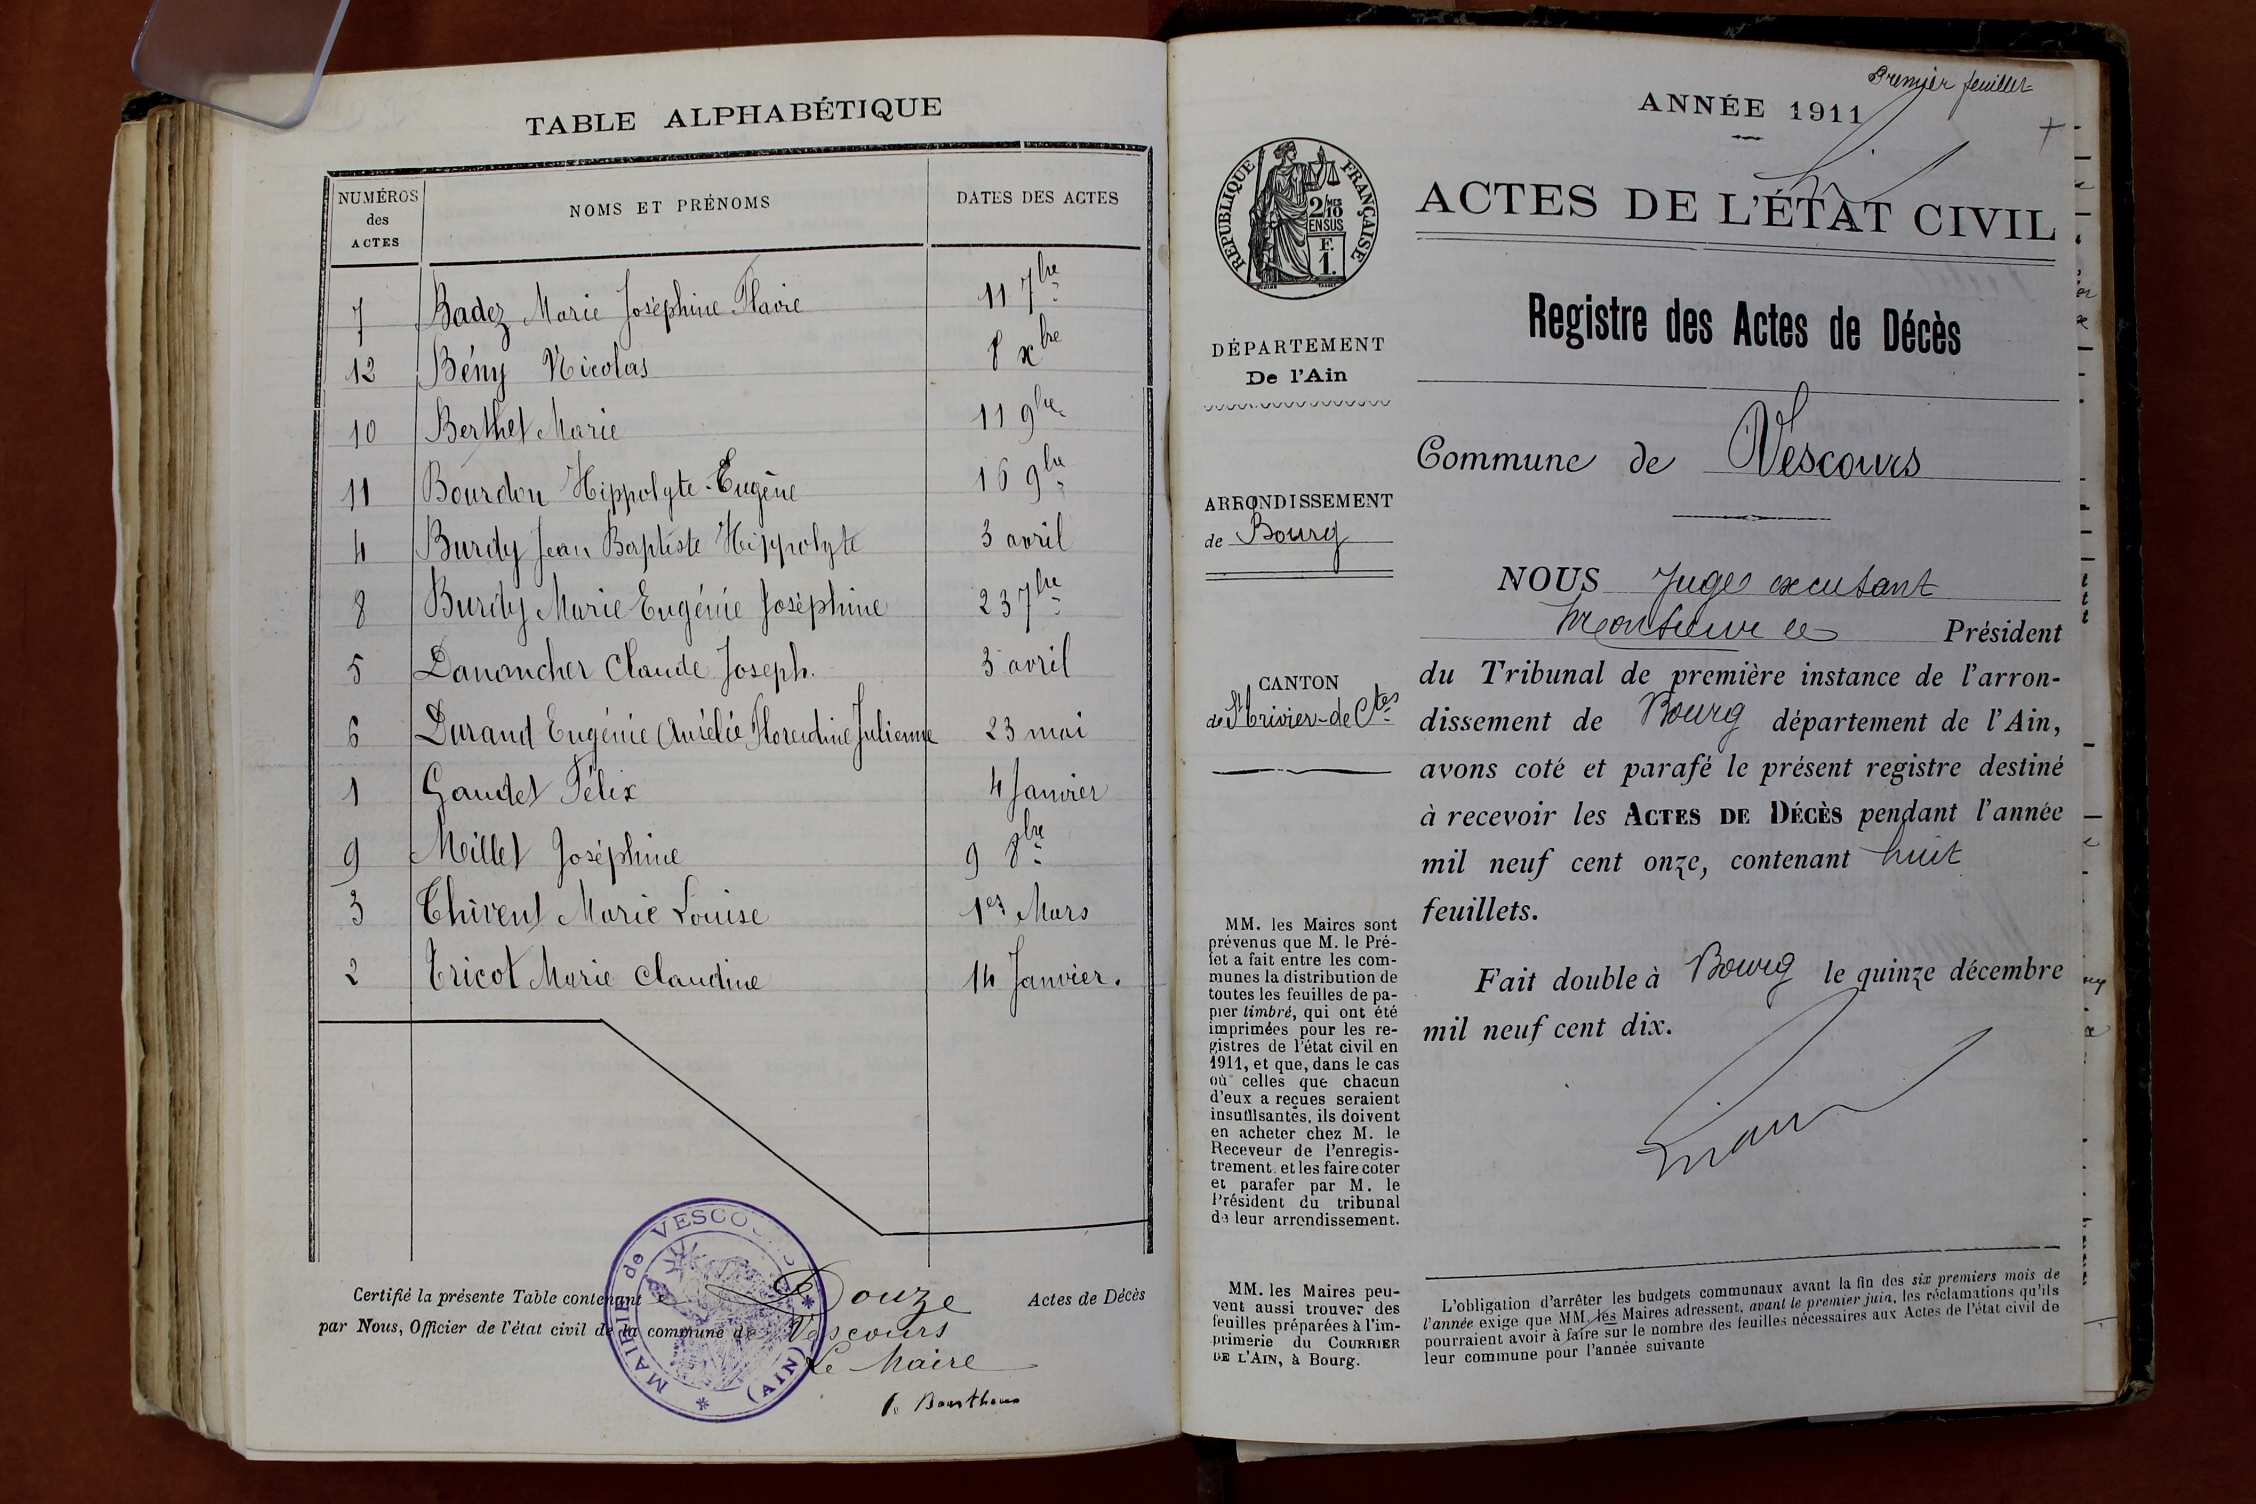 TABLE ALPHABÉTIQUE
NUMÉROS des ACTES
NOMS ET PRÉNOMS
DATES DES ACTES
7 Badez Marie Joséphine Flavie 11 7bre
12 Bény Nicolas 8 xbre
10 Berthet Marie 11 9bre
11 Bourdon Hippolyte-Eugène 16 9bre
4 Burdy Jean Baptiste Hippolyte 3 avril
8 Burdy Marie Eugénie Joséphine 23 7bre
5 Danancher Claude Joseph. 3 avril
6 Durand Eugénie Aurélie Florentine Julienne 23 mai
1 Gaudet Félix 4 Janvier
9 Millet Joséphine 9 8bre
3 Thivent Marie Louise 1er Mars
2 Tricot Marie Claudine 14 Janvier.
Certifié la présente Table contenant Douze Actes de Décès
par Nous, Officier de l'état civil de la commune de Vescours
Le Maire
MAIRIE de VESCOURS
(AIN)
Premier feuillet
ANNÉE 1911
ACTES DE L'ÉTAT CIVIL
RÉPUBLIQUE FRANÇAISE
2/10 MES
EN SUS
F.
1.
Registre des Actes de Décès
DÉPARTEMENT
De l'Ain
Commune de Vescours
ARRONDISSEMENT
de Bourg
CANTON
de St Trivier-de-Ctes
NOUS Juge
Monsieur le Président
du Tribunal de première instance de l'arron-
dissement de Bourg département de l'Ain,
avons coté et parafé le présent registre destiné
à recevoir les ACTES DE DÉCÈS pendant l'année
mil neuf cent onze, contenant huit
feuillets.
Fait double à Bourg le quinze décembre
mil neuf cent dix.
MM. les Maires sont
prévenus que M. le Pré-
fet a fait entre les com-
munes la distribution de
toutes les feuilles de pa-
pier timbré, qui ont été
imprimées pour les re-
gistres de l'état civil en
1911, et que, dans le cas
où celles que chacun
d'eux a reçues seraient
insuffisantes, ils doivent
en acheter chez M. le
Receveur de l'enregis-
trement. et les faire coter
et parafer par M. le
Président du tribunal
de leur arrondissement.
MM. les Maires peu-
vent aussi trouver des
feuilles préparées à l'im-
primerie du COURRIER
DE L'AIN, à Bourg.
L'obligation d'arrêter les budgets communaux avant la fin des six premiers mois de
l'année exige que MM. les Maires adressent, avant le premier juin, les réclamations qu'ils
pourraient avoir à faire sur le nombre des feuilles nécessaires aux Actes de l'état civil de
leur commune pour l'année suivante